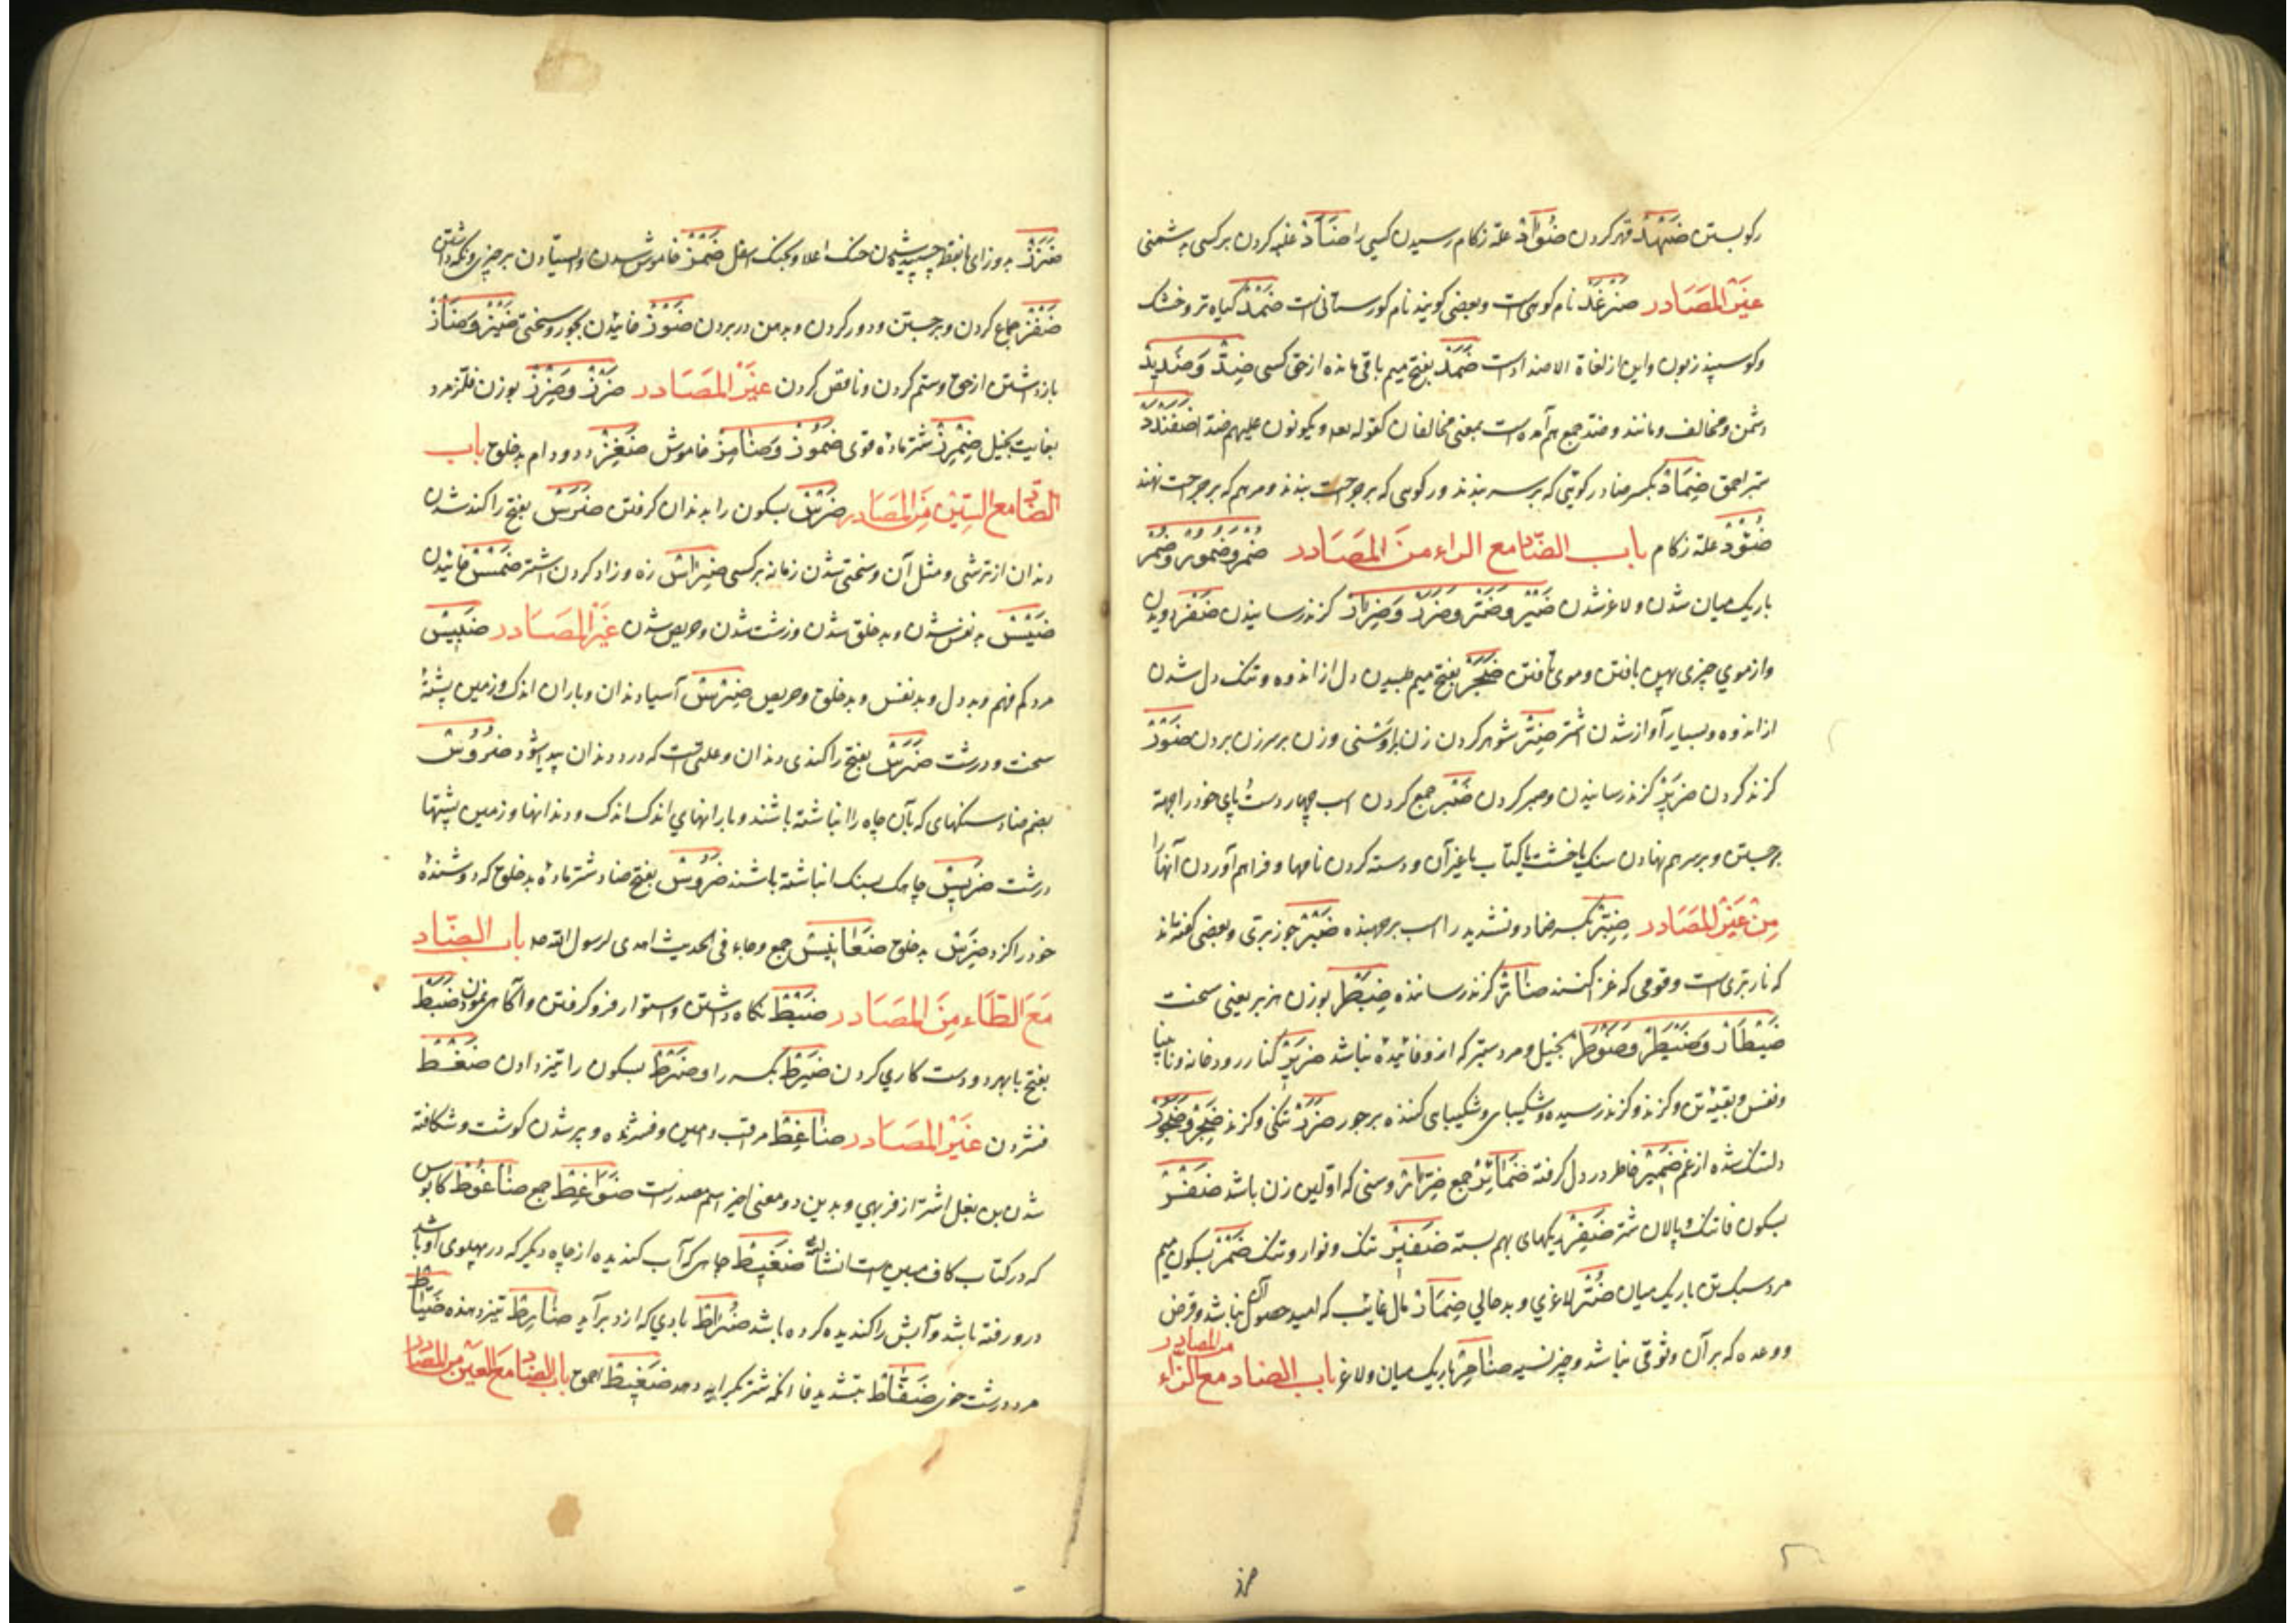 رکو بستن ضَهْد قهر کردن ضُؤَاد علة زکام رسیدن کسی را ضَأْد غلبه کردن بر کسی به دشمنی
غیر المصادر ضَرْغَد نام کوهی است و بعضی کویند نام کورستانی است ضَمْد کیاه تر و خشک
و کوسپند زبون و این از لغاة الاضداد است ضَمَد بفتح میم باقی مانده از حق کسی ضِدّ و ضَدِید
دشمن و مخالف و مانند و ضد جمع هم آمده است بمعنی مخالفان کقوله تعه و یکونون علیهم ضدا ضَفَنْدَد
ستبر احمق ضِمَاد بکسر ضاد رکوئی که بر سر بندند و رکوی که بر جراحت بندند و مرهم که بر جراحت نهند
ضُؤْد علة زکام باب الضاد مع الراء من المصادر ضُمْر و ضُمُور و ضُمُر
باریک میان شدن و لاغر شدن ضَیْر و ضَرّ و ضِرَار کزند رسانیدن ضَفْر دویدن
و از موی چیزی پهن بافتن و موی تافتن ضَجَر بفتح جیم طپیدن دل از اندوه و تنک دل شدن
از اندوه و بسیار آواز شدن اشتر ضِرّ شوهر کردن زن براوشنی و زن بر سر زن بردن ضَوْر
کزند کردن ضَرِیر کزند رسانیدن و صبر کردن ضَبْر جمع کردن اسب چهار دست و پای خود را بجهة
برجستن و بر سر هم نهادن سنک یا خشت یا کتاب یا غیر آن و دسته کردن نامها و فراهم آوردن آنها را
من غیر المصادر ضِبِرّ بکسر ضاد و تشدید را اسب برجهنده ضَبْر جوز بری و بعضی کفته اند
که نار بری است و قومی که غزا کنند ضَارّ کزند رساننده ضِبَطْر بوزن هزبر یعنی سخت
ضَیْطَار و ضَیْطَر و ضَوْطَر بخیل و مرد ستبر که ازو فائیده نباشد ضَرِیر کنار رودخانه و نابینا
و نفس و بقیه تن و کزند و کزند رسیده و شکیبای و شکیبای کننده بر جور ضَرَر تنکی و کزند ضَجِر و ضَجُور
دلتنک شده از غم ضَمِیر خاطر در دل کرفته ضَمَائِر جمع ضَرَائِر وسنی که اولین زن باشد ضَفْر
بسکون فا تنک پالان شتر ضَفِر ریکهای بهم بسته ضَفِیر تنک و نوار و تنک ضَمْر بسکون میم
مرد سبک تن باریک میان ضُرّ لاغری و بدحالی ضِمَار مال غایب که امید حصول آن نباشد و قرض
و وعده که بر آن وثوقی نباشد و چیز نسیه ضَامِر باریک میان و لاغر باب الضاد مع الزاء من المصادر
ضَزَز به دو زای با نقطه چسپیده شدن حنک اعلا و بحنک اسفل ضَمْز خاموش شدن و ایستادن بر چیزی و نکه داشتن
ضَفْز جماع کردن و برجستن و دور کردن و به دهن در بردن ضَوْز خائیدن بجور و سختی ضَیْز و ضَأْز
بازداشتن از حق و ستم کردن و ناقص کردن غیر المصادر ضَرْز و ضِرِزّ بوزن فلزّ مرد
بغایت بخیل ضِمْرِز شتر ماده قوی ضَمُوز و ضَامِز خاموش ضَغِز دد و دام بدخلق باب
الضاد مع السین من المصادر ضَرْس بسکون را بدندان کرفتن ضَرَس بفتح را کند شدن
دندان از ترشی و مثل آن و سختی شدن زمانه بر کسی ضِرَاس زه و زاد کردن اشتر ضَمْس خائیدن
ضَبَس بد نفس شدن و بدخلق شدن و زشت شدن و حریص شدن غیر المصادر ضَبِیس
مرد کم فهم و بددل و بدنفس و بدخلق و حریص ضِرْس آسیا دندان و باران اندک و زمین پشتهٔ
سخت و درشت ضَرَس بفتح را کندی دندان و علتی است که در دندان پیدا شود ضُرُوس
بضم ضاد سنکهای که بآن چاه را انباشته باشند و بارانهای اندک اندک و دندانها و زمین پشتها
درشت ضَرِیس چاهیکه بسنک انباشته باشند ضَرُوس بفتح ضاد شتر ماده بدخلق که دوشندهٔ
خود را کزد ضَرِس بدخلق ضَغَابِیس جمع و جاء فی الحدیث اهدی لرسول الله صه باب الضاد
مع الطاء من المصادر ضَبْط نکاه داشتن و استوار فرو کرفتن و آکاهی نمودن ضَبَط
بفتح با بهر دو دست کاری کردن ضَرِط بکسر را و ضَرْط بسکون را تیز دادن ضَغْط
فشردن غیر المصادر ضَاغِط مراقب و امین و فشرنده و پر شدن کوشت و شکافته
شدن بن بغل اشتر از فربهی و بدین دو معنی اخیر اسم مصدر است ضَوَاغِط جمع ضَاغُوط کابوس
که در کتاب کاف مبین است انشاالله ضَغِیط چاهی که آب کندیده از چاه دیکر که در پهلوی او باشد
درو رفته باشد و آبش را کندیده کرده باشد ضُرَاط بادی که از دبر آید ضَارِط تیز دهنده ضَیَّاط
مرد درشت خوی ضَفَّاط بتشدید فا انکه شتر بکرایه دهد ضَفِیط احمق باب الضاد مع العین من المصادر